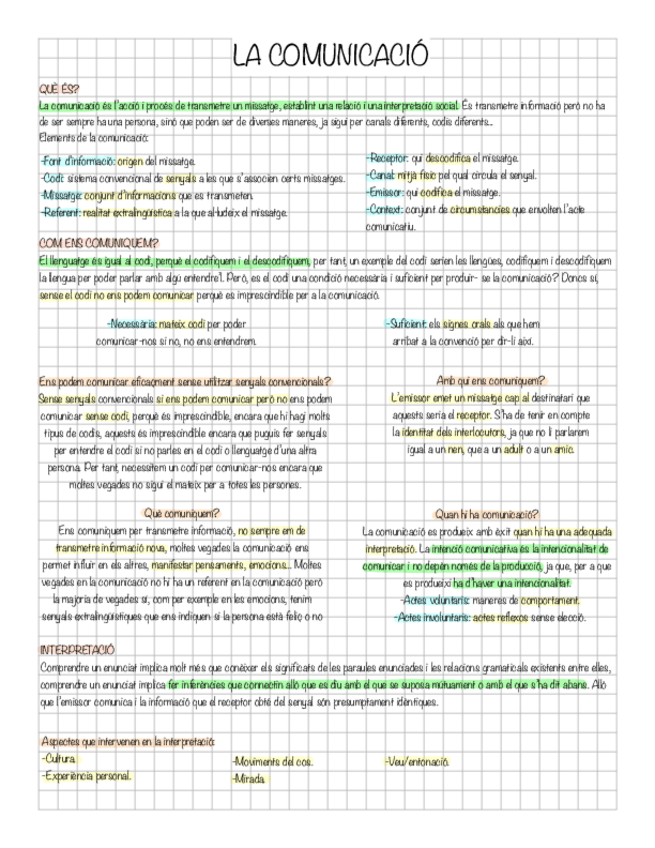 LA COMUNICACIÓ
QUÈ ÉS?
La comunicació és l'acció i procés de transmetre un missatge, establint una relació i una interpretació social. És transmetre informació però no ha
de ser sempre ha una persona, sinó que poden ser de diverses maneres, ja sigui per canals diferents, codis diferents...
Elements de la comunicació:
-Font d'informació: origen del missatge.
-Codi: sistema convencional de senyals a les que s'associen certs missatges.
-Missatge: conjunt d'informacions que es transmeten.
-Referent: realitat extralingüística a la que al·ludeix el missatge.
-Receptor: qui descodifica el missatge.
-Canal: mitjà físic pel qual circula el senyal.
-Emissor: qui codifica el missatge.
-Context: conjunt de circumstancies que envolten l'acte
comunicatiu.
COM ENS COMUNIQUEM?
El llenguatge és igual al codi, perquè el codifiquem i el descodifiquem, per tant, un exemple del codi serien les llengües, codifiquem i descodifiquem
la llengua per poder parlar amb algú entendre'l. Però, es el codi una condició necessària i suficient per produir- se la comunicació? Doncs sí,
sense el codi no ens podem comunicar perquè es imprescindible per a la comunicació.
-Necessària: mateix codi per poder
comunicar-nos si no, no ens entendrem.
-Suficient: els signes orals als que hem
arribat a la convenció per dir-li així.
Ens podem comunicar eficaçment sense utilitzar senyals convencionals?
Sense senyals convencionals si ens podem comunicar però no ens podem
comunicar sense codi, perquè és imprescindible, encara que hi hagi molts
tipus de codis, aquests és imprescindible encara que puguis fer senyals
per entendre el codi si no parles en el codi o llenguatge d'una altra
persona. Per tant, necessitem un codi per comunicar-nos encara que
moltes vegades no sigui el mateix per a totes les persones.
Amb qui ens comuniquem?
L'emissor emet un missatge cap al destinatari que
aquests seria el receptor. S'ha de tenir en compte
la identitat dels interlocutors, ja que no li parlarem
igual a un nen, que a un adult o a un amic.
Què comuniquem?
Ens comuniquem per transmetre informació, no sempre em de
transmetre informació nova, moltes vegades la comunicació ens
permet influir en els altres, manifestar pensaments, emocions... Moltes
vegades en la comunicació no hi ha un referent en la comunicació però
la majoria de vegades sí, com per exemple en les emocions, tenim
senyals extralingüístiques que ens indiquen si la persona està feliç o no
Quan hi ha comunicació?
La comunicació es produeix amb èxit quan hi ha una adequada
interpretació. La intenció comunicativa és la intencionalitat de
comunicar i no depèn només de la producció, ja que, per a que
es produeixi ha d'haver una intencionalitat.
-Actes voluntaris: maneres de comportament.
-Actes involuntaris: actes reflexos sense elecció.
INTERPRETACIÓ
Comprendre un enunciat implica molt més que conèixer els significats de les paraules enunciades i les relacions gramaticals existents entre elles,
comprendre un enunciat implica fer inferències que connectin allò que es diu amb el que se suposa mútuament o amb el que s'ha dit abans. Allò
que l'emissor comunica i la informació que el receptor obté del senyal són presumptament idèntiques.
Aspectes que intervenen en la interpretació:
-Cultura.
-Experiència personal.
-Moviments del cos.
-Mirada.
-Veu/entonació.